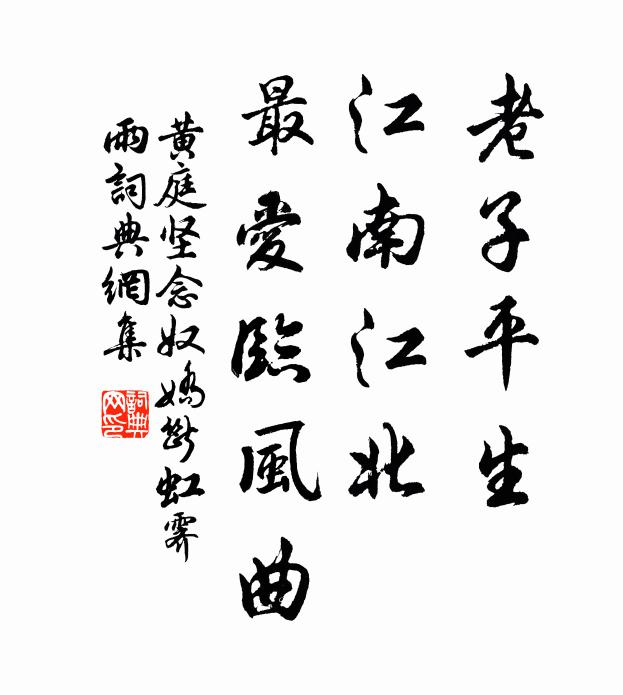 老子平生
江南江北
最愛臨風曲
黄庭坚念奴嬌斷虹霽
雨詞典網集
詞典
网印